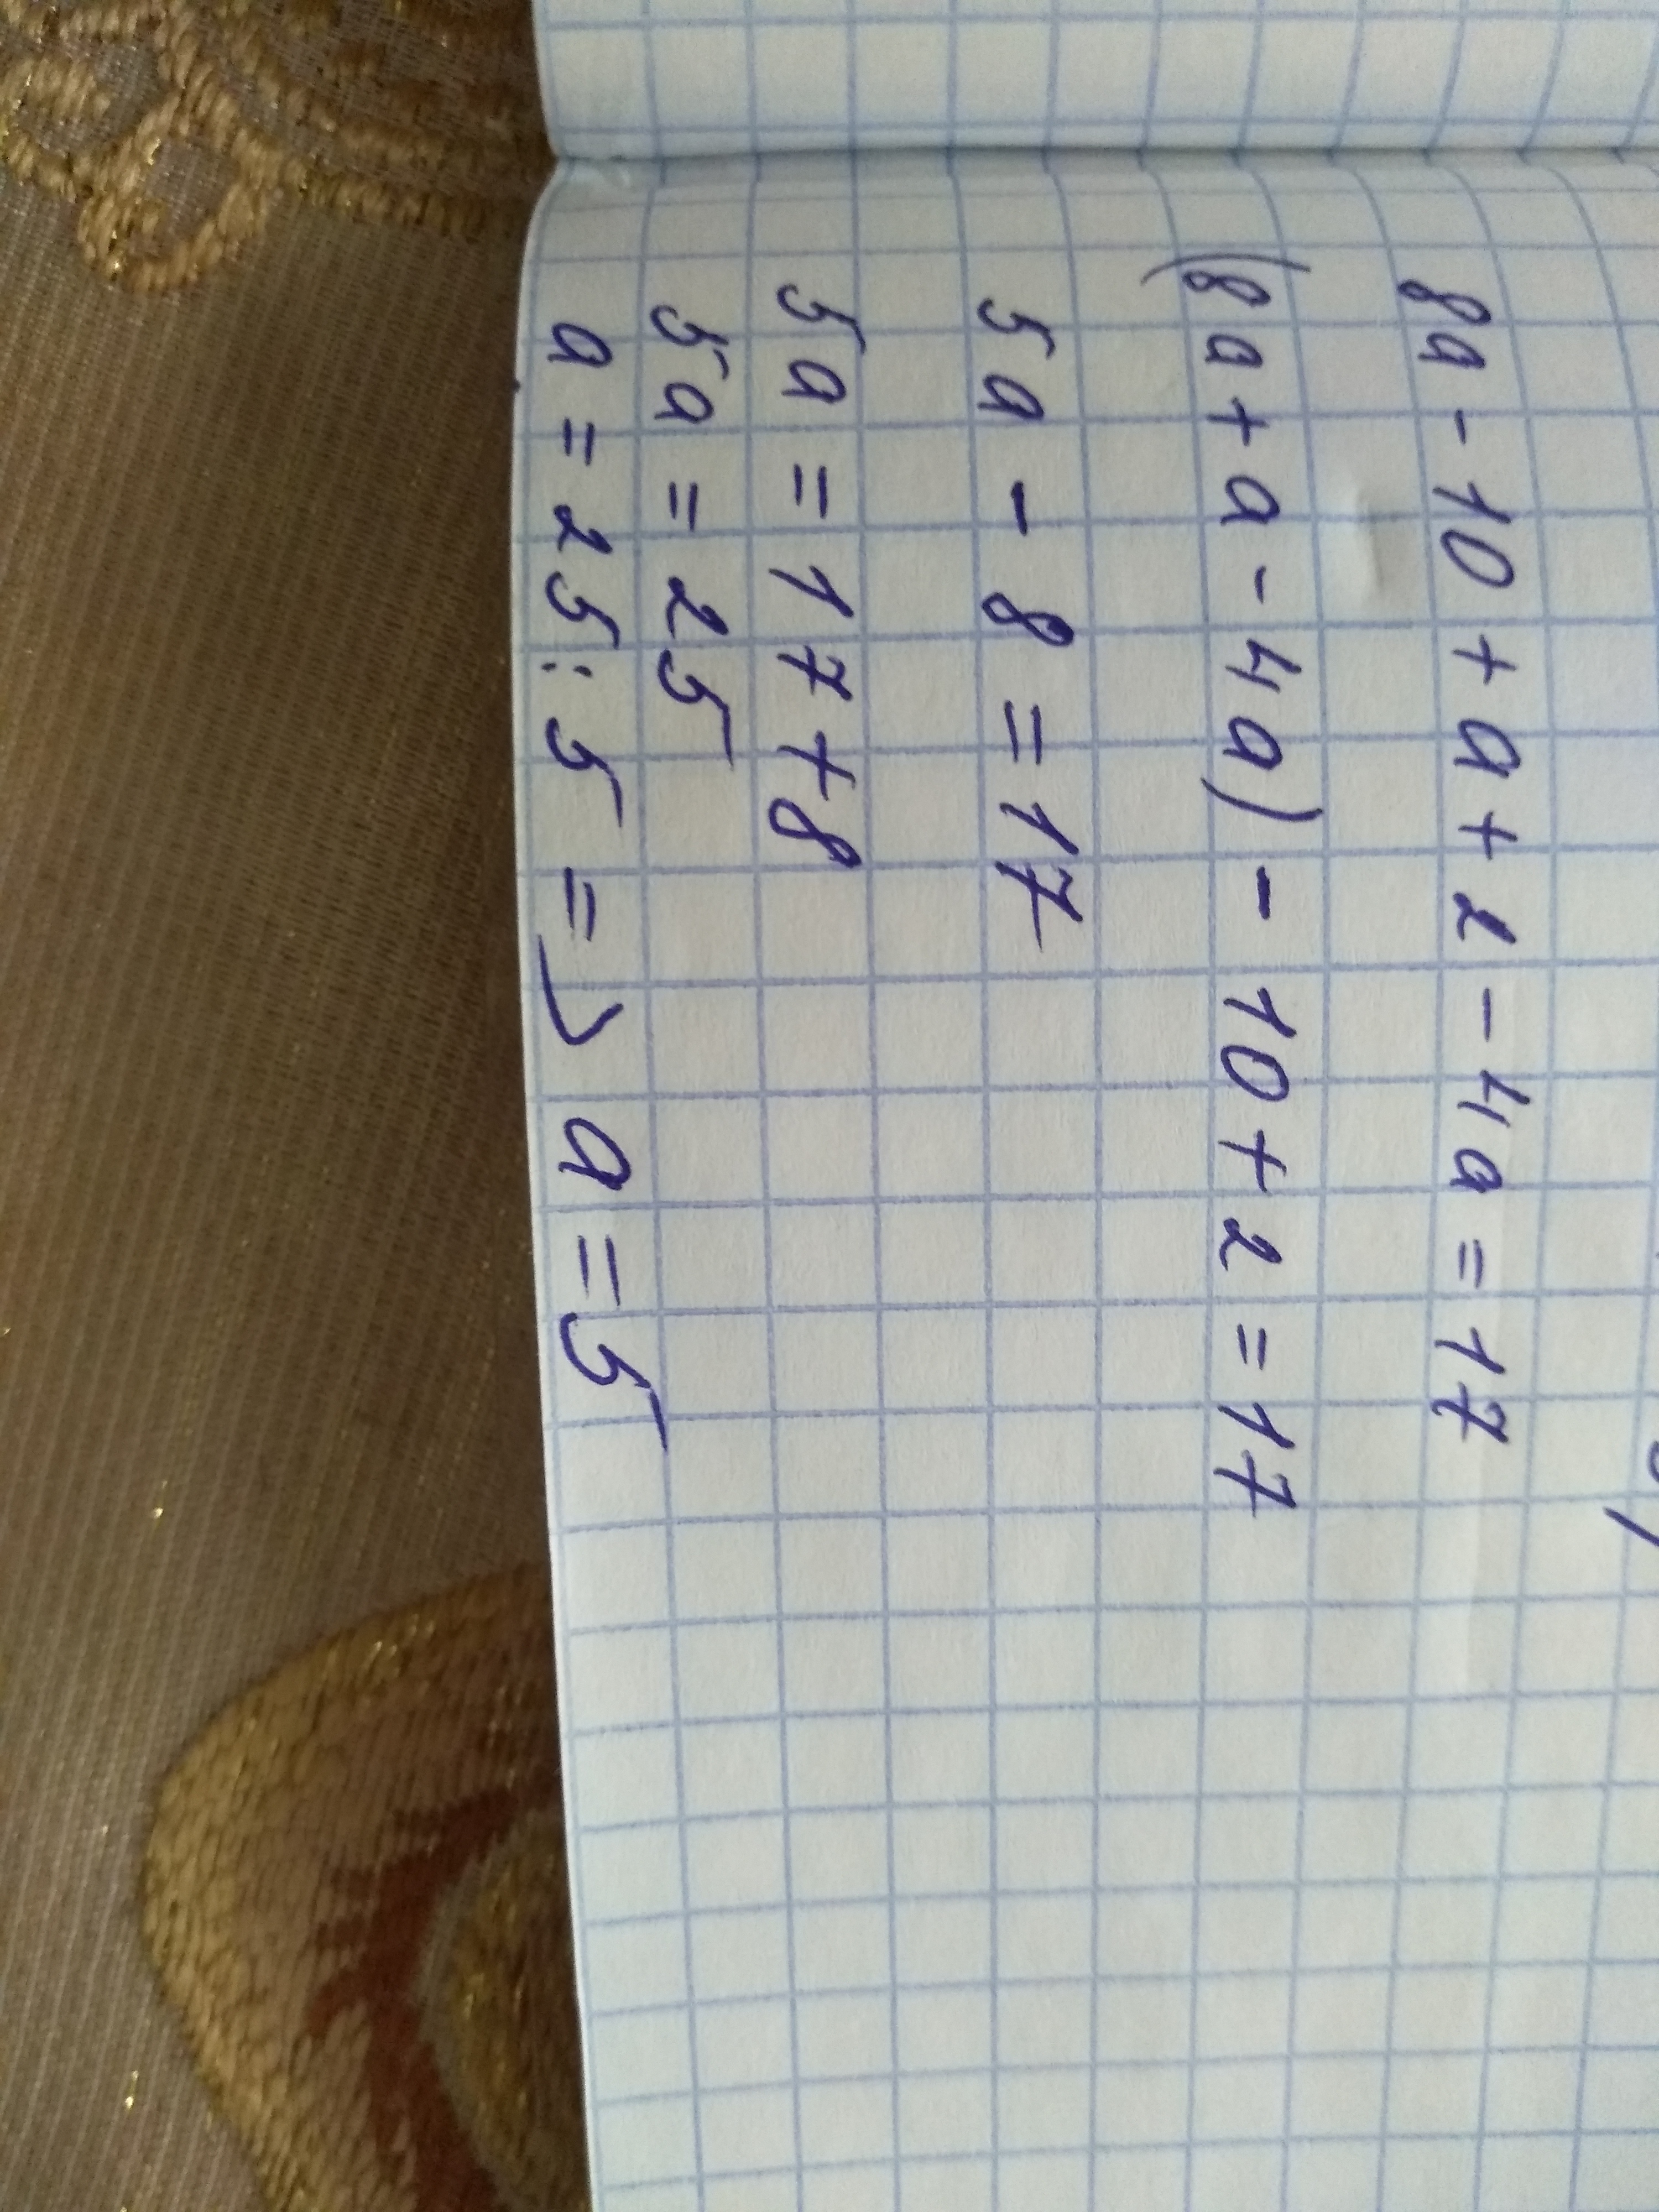 8a - 10 + a + 2 - 4a = 17
(8a + a - 4a) - 10 + 2 = 17
5a - 8 = 17
5a = 17 + 8
5a = 25
a = 25 : 5 => a = 5